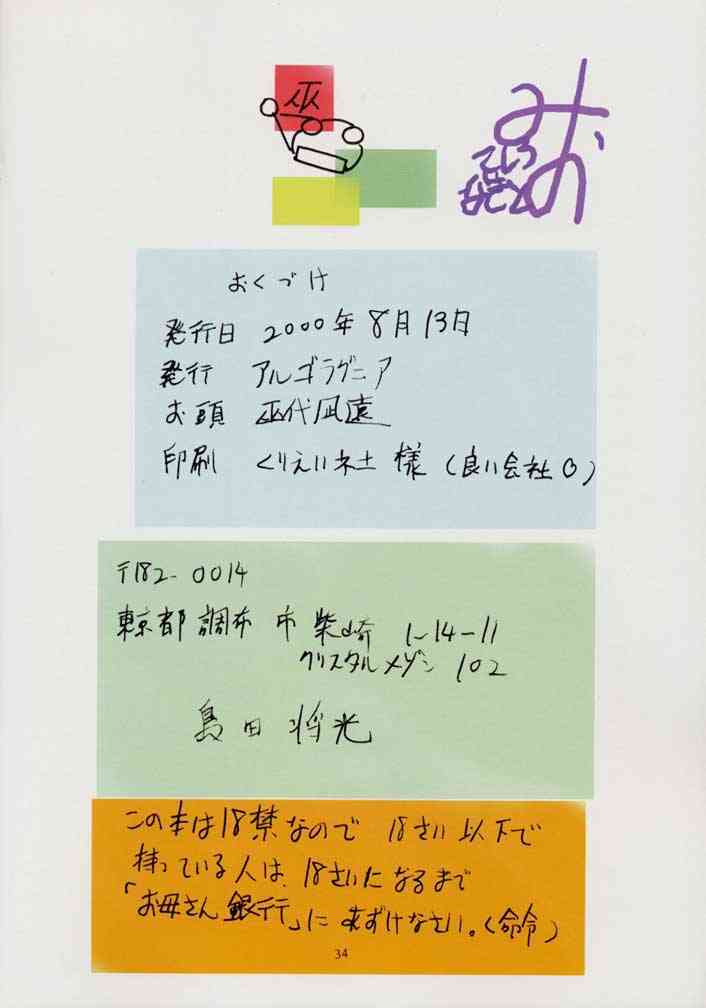 巫
みお
おくづけ
発行日 2000年8月13日
発行 アルゴラグニア
お頭 巫代凪遠
印刷 くりえい社 様 (良い会社〇)
〒182-0014
東京都調布市柴崎 1-14-11
クリスタルメゾン 102
島田将光
この本は18禁なので 18さい以下で
持っている人は、18さいになるまで
「お母さん銀行」にあずけなさい。(命令)
34